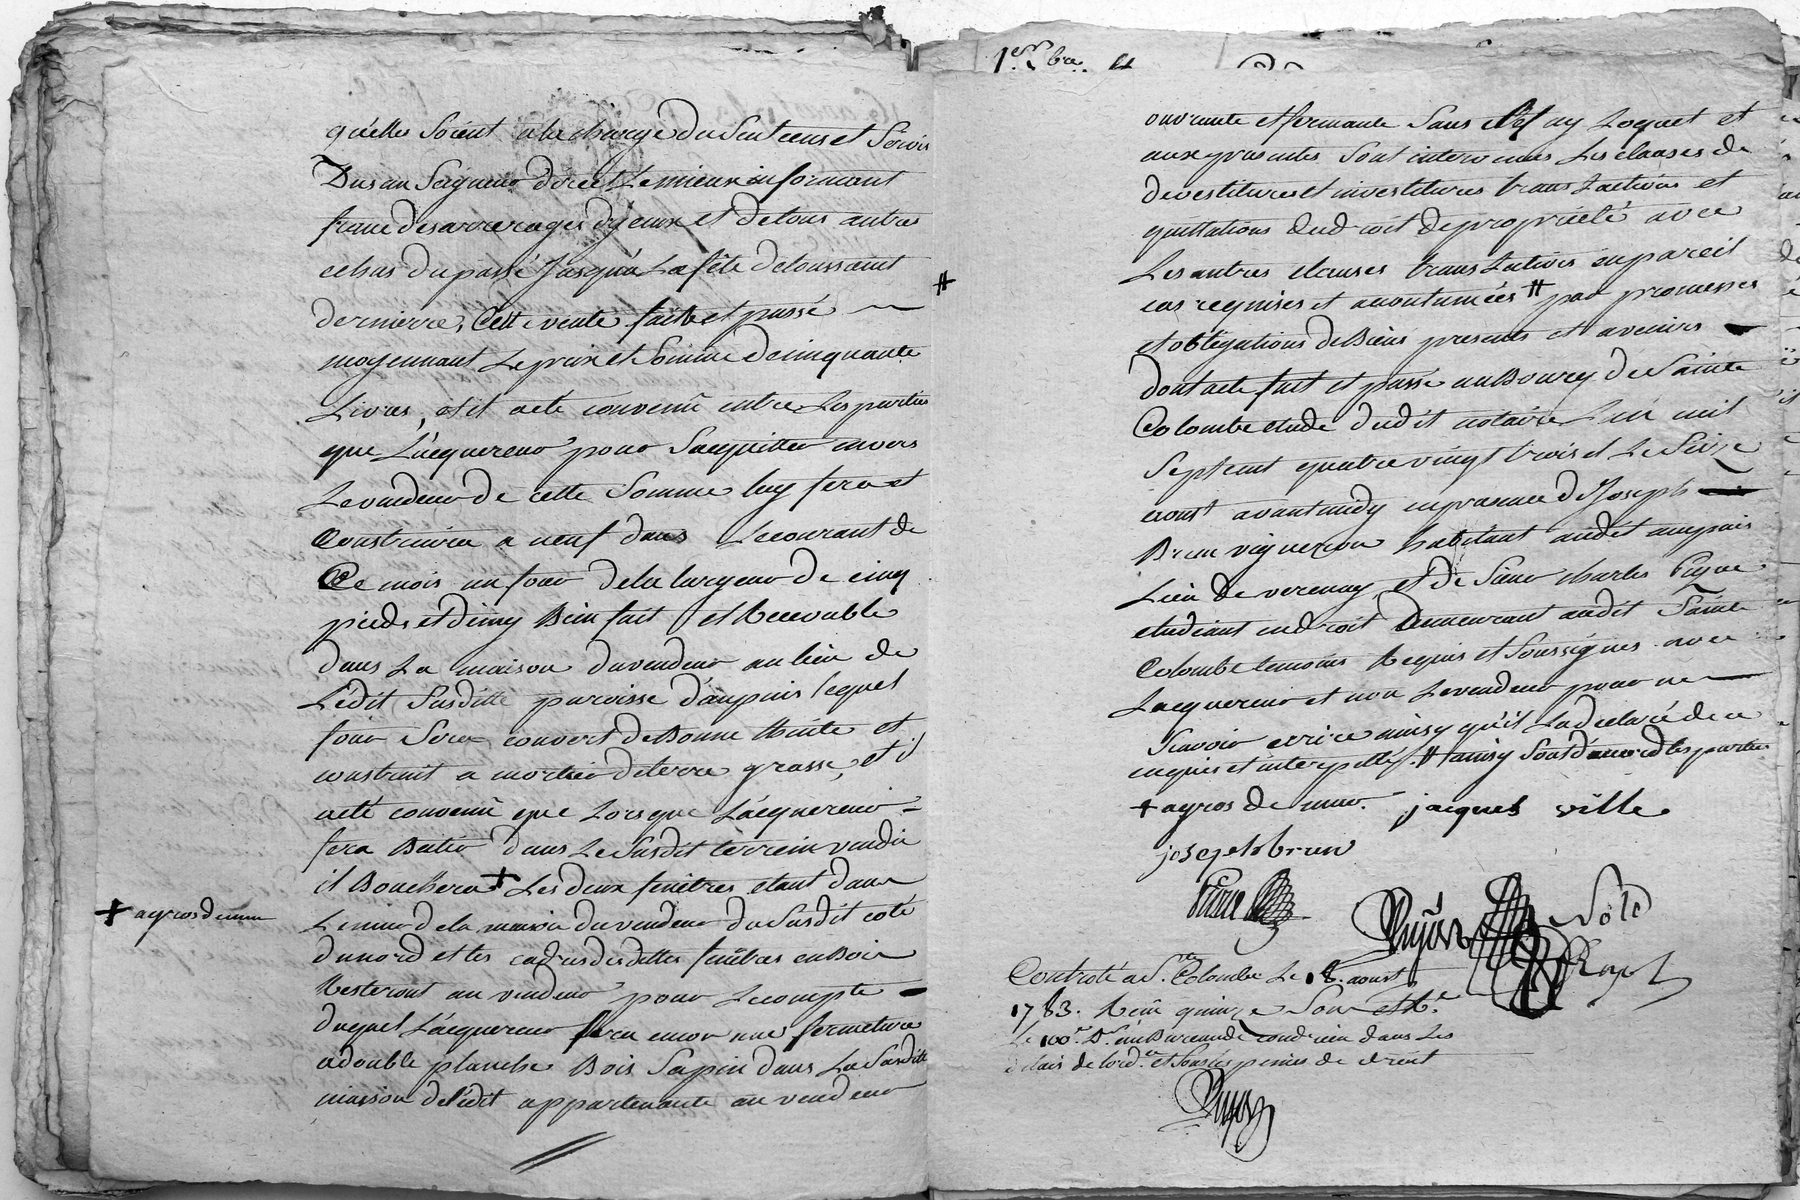 qu'elle soient a la charge du Sent cens et Servis
Dus au Seigneur direct le mieux informant
franc des arrerages d'yceux et de tous autres
cehas du passé jusqu'a La fête de toussaint
derniere, Cette vente faitte et passé
moyennant Le prix et Somme de cinquante
Livres, et il a eté convenû entre Les parties
que L'acquereur pour S'acquitter envers
Le vendeur de cette Somme luy fera et
Construira a neuf dans Le courant de
Ce mois un four de la largeur de cinq
pieds et demy Bien fait et Recevable
dans La maison du vendeur au lieu de
L'édit Susditte paroisse d'ampuis lequel
four Sera couvert de Bonne et
construit a mortier de terre grasse, et il
a eté convenû que Lorsque L'acquereur
fera Batir dans Le Susdit terrein vendu
il Bouchera + Les deux fenêtres etant dans
+ a gros de mur
Le mur de la maison du vendeur du Susdit coté
du nord et les cadres desdittes fenêtres en Bois
Resteront au vendeur pour Le compte
duquel L'acquereur fera encor une fermeture
a double planche Bois Sapin dans La Susditte
maison de l'édit appartenante au vendeur
1er. 7bre.
#
ouvrante et fermante Sans clef ny Loquet et
aux presentes Sont intervenues Les clauses de
devestitures et investitures translactions et
quittations dudroit de proprieté avec
Les autres clauses translatives en pareil
cas requises et acoutumées # par promesses
et obligations de Biens presents et avenirs
dont acte fait et passé au Bourg de Sainte
Colombe etude dudit notaire L'an mil
Sept cent quatre vingt trois et Le Seize
aoust avant midy en presence de Joseph
Brun vigneron habitant audit ampuis
Lieu de verenay et de Sieur charles
etudiant en droit demeurant audit Sainte
Colombe temoins Requis et Soussignés avec
L'acquereur et non Le vendeur pour ne
Scavoir ecrire ainsy qu'il L'a declaré de ce
enquis et interpellé. # ainsy Sont d'accord les parties
+ a gros de mur. jacques ville
joseph brun
Controlé a Ste. Colombe Le aoust
1783. Reçû quinze Sous et Ré.
Le 100e. Dr. au Bureau de condrieu dans Les
delais de l'ord.ce et Sous les peines de droit